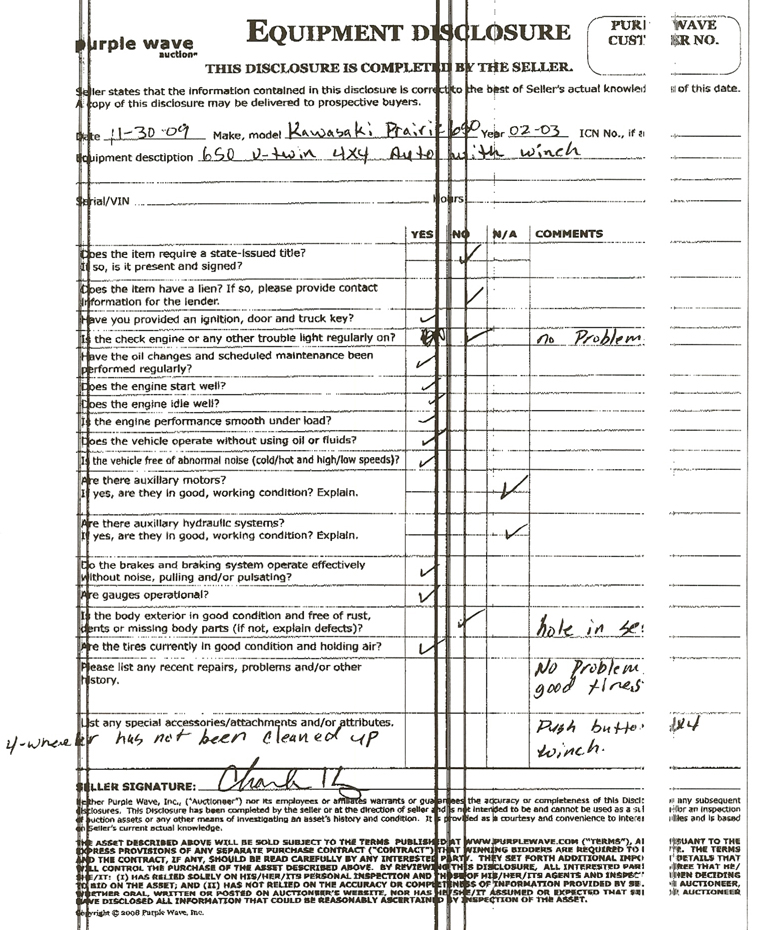 purple wave
auction
EQUIPMENT DISCLOSURE
PUR WAVE
CUST ER NO.
THIS DISCLOSURE IS COMPLETED BY THE SELLER.
Seller states that the information contained in this disclosure is correct to the best of Seller's actual knowled of this date.
A copy of this disclosure may be delivered to prospective buyers.
Date 11-30-09 Make, model Kawasaki Prairie 650 Year 02-03 ICN No., if a
Equipment desctiption 650 V-twin 4X4 Auto with winch
Serial/VIN Hours
YES NO N/A COMMENTS
Does the item require a state-issued title?
If so, is it present and signed?
Does the item have a lien? If so, please provide contact
information for the lender.
Have you provided an ignition, door and truck key?
Is the check engine or any other trouble light regularly on? no Problem
Have the oil changes and scheduled maintenance been
performed regularly?
Does the engine start well?
Does the engine idle well?
Is the engine performance smooth under load?
Does the vehicle operate without using oil or fluids?
Is the vehicle free of abnormal noise (cold/hot and high/low speeds)?
Are there auxillary motors?
If yes, are they in good, working condition? Explain.
Are there auxillary hydraulic systems?
If yes, are they in good, working condition? Explain.
Do the brakes and braking system operate effectively
without noise, pulling and/or pulsating?
Are gauges operational?
Is the body exterior in good condition and free of rust,
dents or missing body parts (if not, explain defects)? hole in se
Are the tires currently in good condition and holding air?
Please list any recent repairs, problems and/or other No Problem
history. good tires
List any special accessories/attachments and/or attributes. Push butto 4x4
4-wheeler has not been cleaned up winch.
SELLER SIGNATURE:
Neither Purple Wave, Inc., ("Auctioneer") nor its employees or affiliates warrants or guarantees the accuracy or completeness of this Discl any subsequent
disclosures. This Disclosure has been completed by the seller or at the direction of seller and is not intended to be and cannot be used as a su for an inspection
of auction assets or any other means of investigating an asset's history and condition. It is provided as a courtesy and convenience to intere and is based
on Seller's current actual knowledge.
THE ASSET DESCRIBED ABOVE WILL BE SOLD SUBJECT TO THE TERMS PUBLISHED AT WWW.PURPLEWAVE.COM ("TERMS"), A SUANT TO THE
EXPRESS PROVISIONS OF ANY SEPARATE PURCHASE CONTRACT ("CONTRACT") THAT WINNING BIDDERS ARE REQUIRED TO THE TERMS
AND THE CONTRACT, IF ANY, SHOULD BE READ CAREFULLY BY ANY INTERESTED PARTY. THEY SET FORTH ADDITIONAL IMPO DETAILS THAT
WILL CONTROL THE PURCHASE OF THE ASSET DESCRIBED ABOVE. BY REVIEWING THIS DISCLOSURE, ALL INTERESTED PAR REE THAT
HE/IT: (I) HAS RELIED SOLELY ON HIS/HER/ITS PERSONAL INSPECTION AND THOSE OF HIS/HER/ITS AGENTS AND INSPEC EN DECIDING
TO BID ON THE ASSET; AND (II) HAS NOT RELIED ON THE ACCURACY OR COMPLETENESS OF INFORMATION PROVIDED BY SE AUCTIONEER,
WHETHER ORAL, WRITTEN OR POSTED ON AUCTIONEER'S WEBSITE, NOR HAS HE/SHE/IT ASSUMED OR EXPECTED THAT SE AUCTIONEER
HAVE DISCLOSED ALL INFORMATION THAT COULD BE REASONABLY ASCERTAINED BY INSPECTION OF THE ASSET.
Copyright © 2008 Purple Wave, Inc.